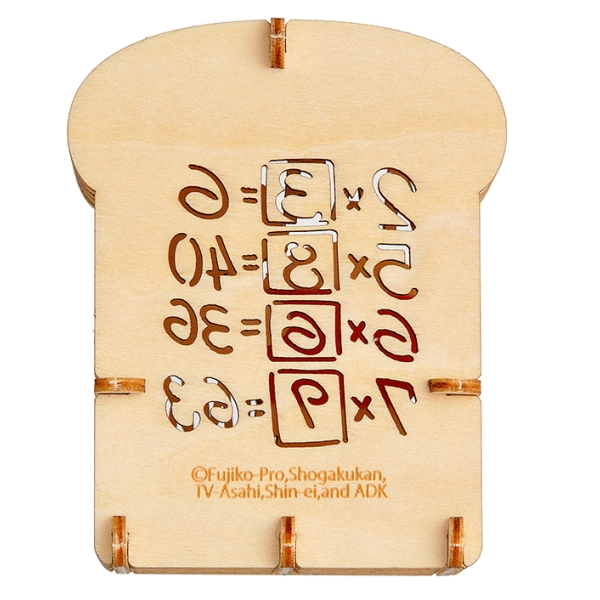 2×3=6
5×8=40
6×6=36
7×9=63
©Fujiko-Pro,Shogakukan,
TV-Asahi,Shin-ei,and ADK